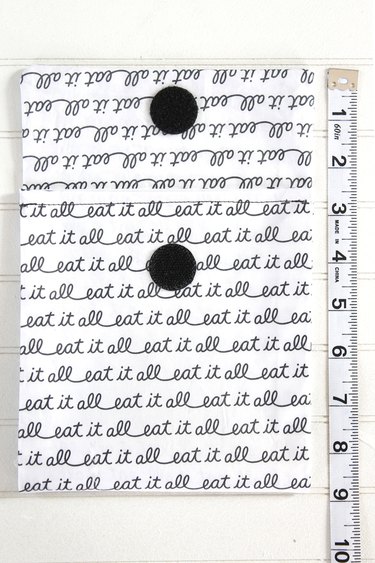 eat it all eat it all eat it all
eat it all eat it all eat
all eat it all eat it all
eat it all eat it all eat it all
eat it all eat it all eat it all
t it all eat it all eat it all eat it
eat it all eat it all eat it all ea
it all eat it all eat it all
t it all eat it all eat it all eat it
eat it all eat it all eat it all ea
eat it all eat it all eat it all
t it all eat it all eat it all eat it
eat it all eat it all eat it all ea
eat it all eat it all eat it all
t it all eat it all eat it all eat it
eat it all eat it all eat it all ea
1
60in
2
3
MADE IN CHINA
4
5
6
7
8
9
10